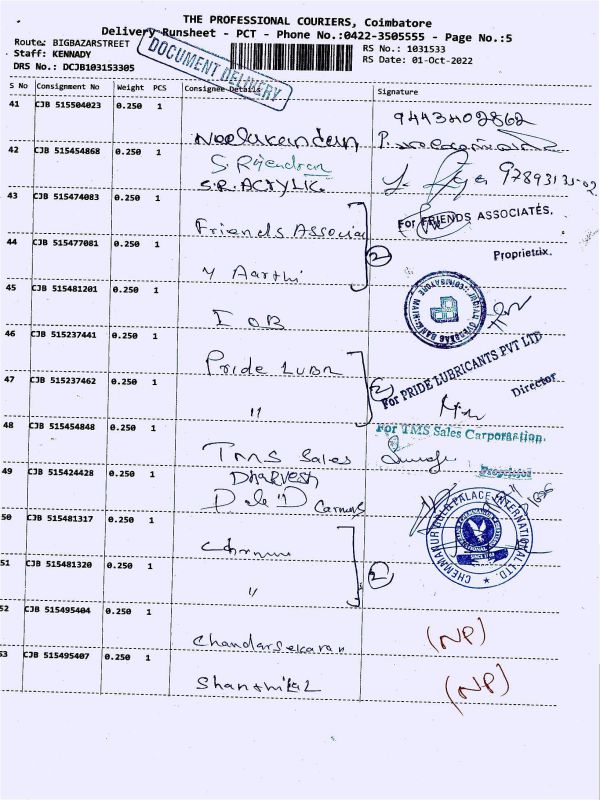 THE PROFESSIONAL COURIERS, Coimbatore
Delivery Runsheet - PCT - Phone No.:0422-3505555 - Page No.:5
Route: BIGBAZARSTREET
RS No.: 1031533
Staff: KENNADY
RS Date: 01-Oct-2022
DRS No.: DCJB103153305
DOCUMENT DELIVERY
S No Consignment No Weight PCS Consignee Details Signature
41 CJB 515504023 0.250 1
Neelakandan
42 CJB 515454868 0.250 1
S. Rajendran
S.R. ACTYLIC
43 CJB 515474083 0.250 1
Friends Associa
For FRIENDS ASSOCIATES,
2
Proprietrix.
44 CJB 515477081 0.250 1
Y Aarthi
45 CJB 515481201 0.250 1
I O B
INDIAN OVERSEAS BANK
COIMBATORE MAIN
46 CJB 515237441 0.250 1
Pride LUBR
2
For PRIDE LUBRICANTS PVT LTD
Director
47 CJB 515237462 0.250 1
"
48 CJB 515454848 0.250 1
TMS Sales
For TMS Sales Carporation.
Proprietor
49 CJB 515424428 0.250 1
Dharvesh
50 CJB 515481317 0.250 1
2
CHEMMANUR GOLD PALACE INTERNATIONAL LTD.
51 CJB 515481320 0.250 1
"
52 CJB 515495404 0.250 1
Chandarsekaran
(NP)
53 CJB 515495407 0.250 1
(NP)